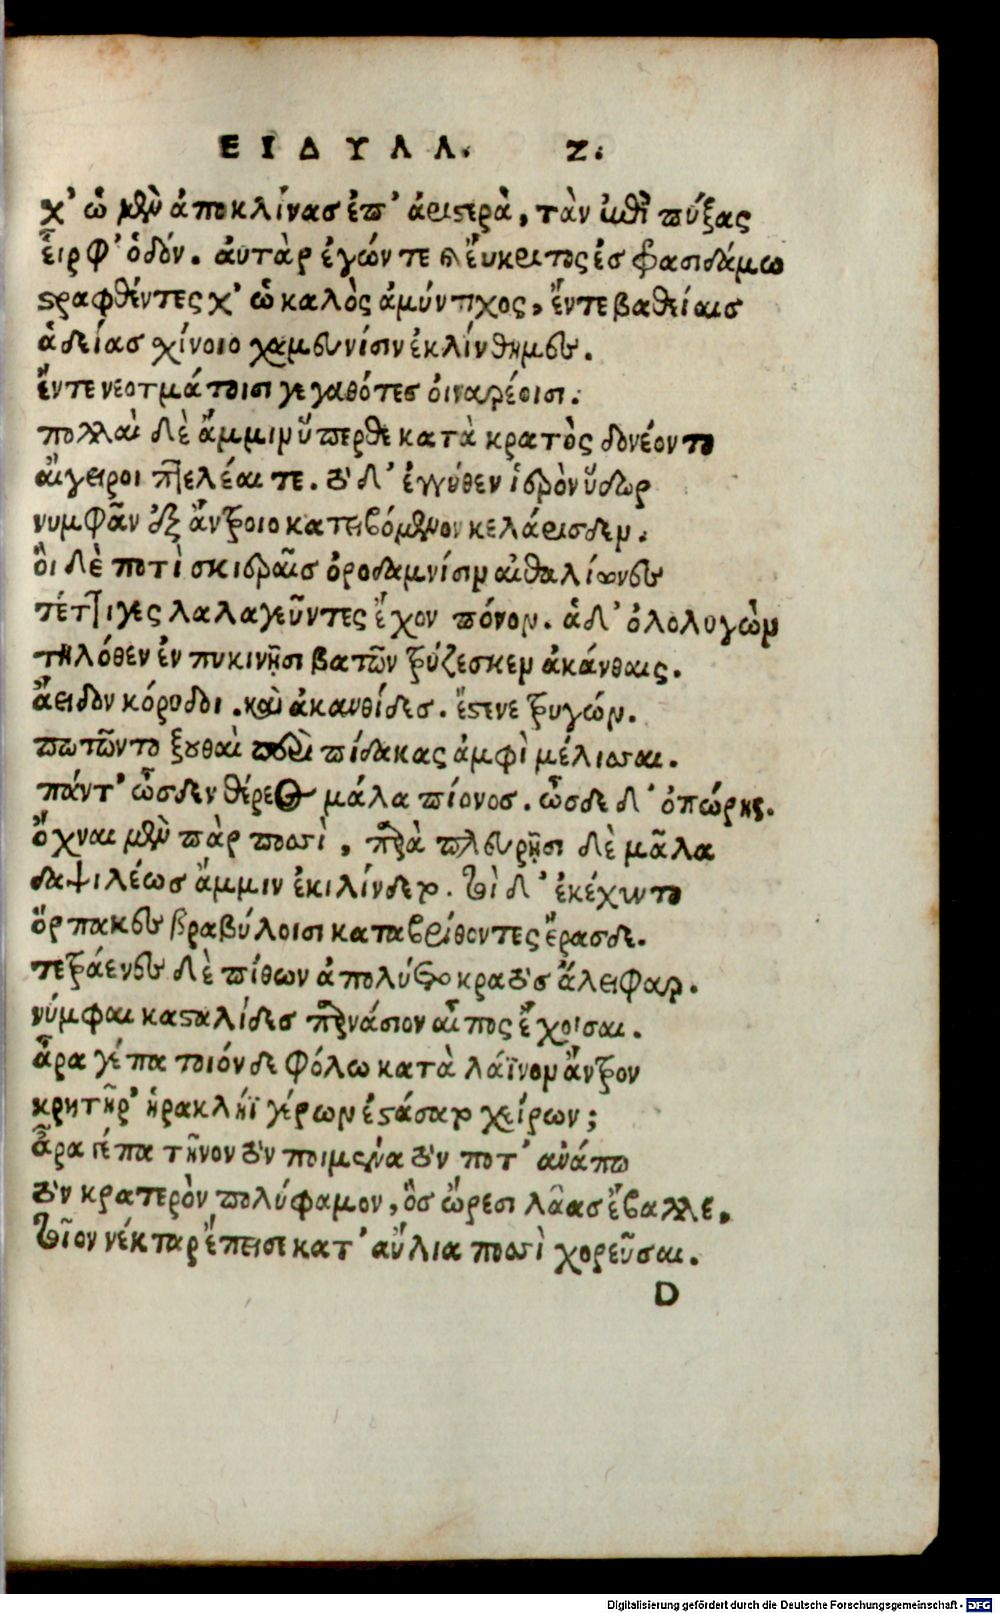 ΕΙΔΥΛΛ. Ζ.
χ' ὡ μὲν ἀποκλίνας ἐπ' ἀριστερὰ, τὰν ἐπὶ πύξας
εἷρφ' ὁδόν. αὐτὰρ ἐγών τε καὶ εὔκριτος ἐς φρασιδάμω
στραφθέντες χ' ὡ καλὸς ἀμύντιχος, ἔντε βαθείαις
ἁδείας χίνοιο χαμευνίσιν ἐκλίνθημες.
ἔντε νεοτμάτοισι γεγαθότες οἰναρέοισι.
πολλαὶ δὲ ἄμμιν ὕπερθε κατὰ κρατὸς δονέοντο
αἴγειροι πτελέαι τε. τὸ δ' ἐγγύθεν ἱερὸν ὕδωρ
νυμφᾶν ἐξ ἄντροιο κατειβόμενον κελάρισδεν.
οἳ δὲ ποτὶ σκιεραῖς ὀροδαμνίσιν αἰθαλίωνες
τέττιγες λαλαγεῦντες ἔχον πόνον. ἁ δ' ὀλολυγὼν
τηλόθεν ἐν πυκινῇσι βατῶν τρύζεσκεν ἀκάνθαις.
ἄειδον κόρυδοι .καὶ ἀκανθίδες. ἔστενε τρυγών.
πωτῶντο ξουθαὶ περὶ πίδακας ἀμφὶ μέλισσαι.
πάντ' ὦσδεν θέρεος μάλα πίονος. ὦσδε δ' ὀπώρης.
ὄχναι μὲν πὰρ ποσσὶ, παρὰ πλευρῇσι δὲ μᾶλα
δαψιλέως ἄμμιν ἐκιλίνδετο. τοὶ δ' ἐκέχυντο
ὅρπακες βραβύλοισι καταβρίθοντες ἔρασδε.
τετράενες δὲ πίθων ἀπολύετο κρατὸς ἄλειφαρ.
νύμφαι κασταλίδες παρνάσιον αἶπος ἔχοισαι.
ἆρα γέ πα τοιόνδε φόλω κατὰ λάϊνον ἄντρον
κρητῆρ' ἡρακλῆϊ γέρων ἐστάσατο χείρων;
ἆρα γέ πα τῆνον τὸν ποιμένα τὸν ποτ' ἀνάπῳ
τὸν κρατερὸν πολύφαμον, ὃς ὤρεσι λᾶας ἔβαλλε,
τοῖον νέκταρ ἔπεισε κατ' αὔλια ποσσὶ χορεῦσαι.
D
Digitalisierung gefördert durch die Deutsche Forschungsgemeinschaft - DFG